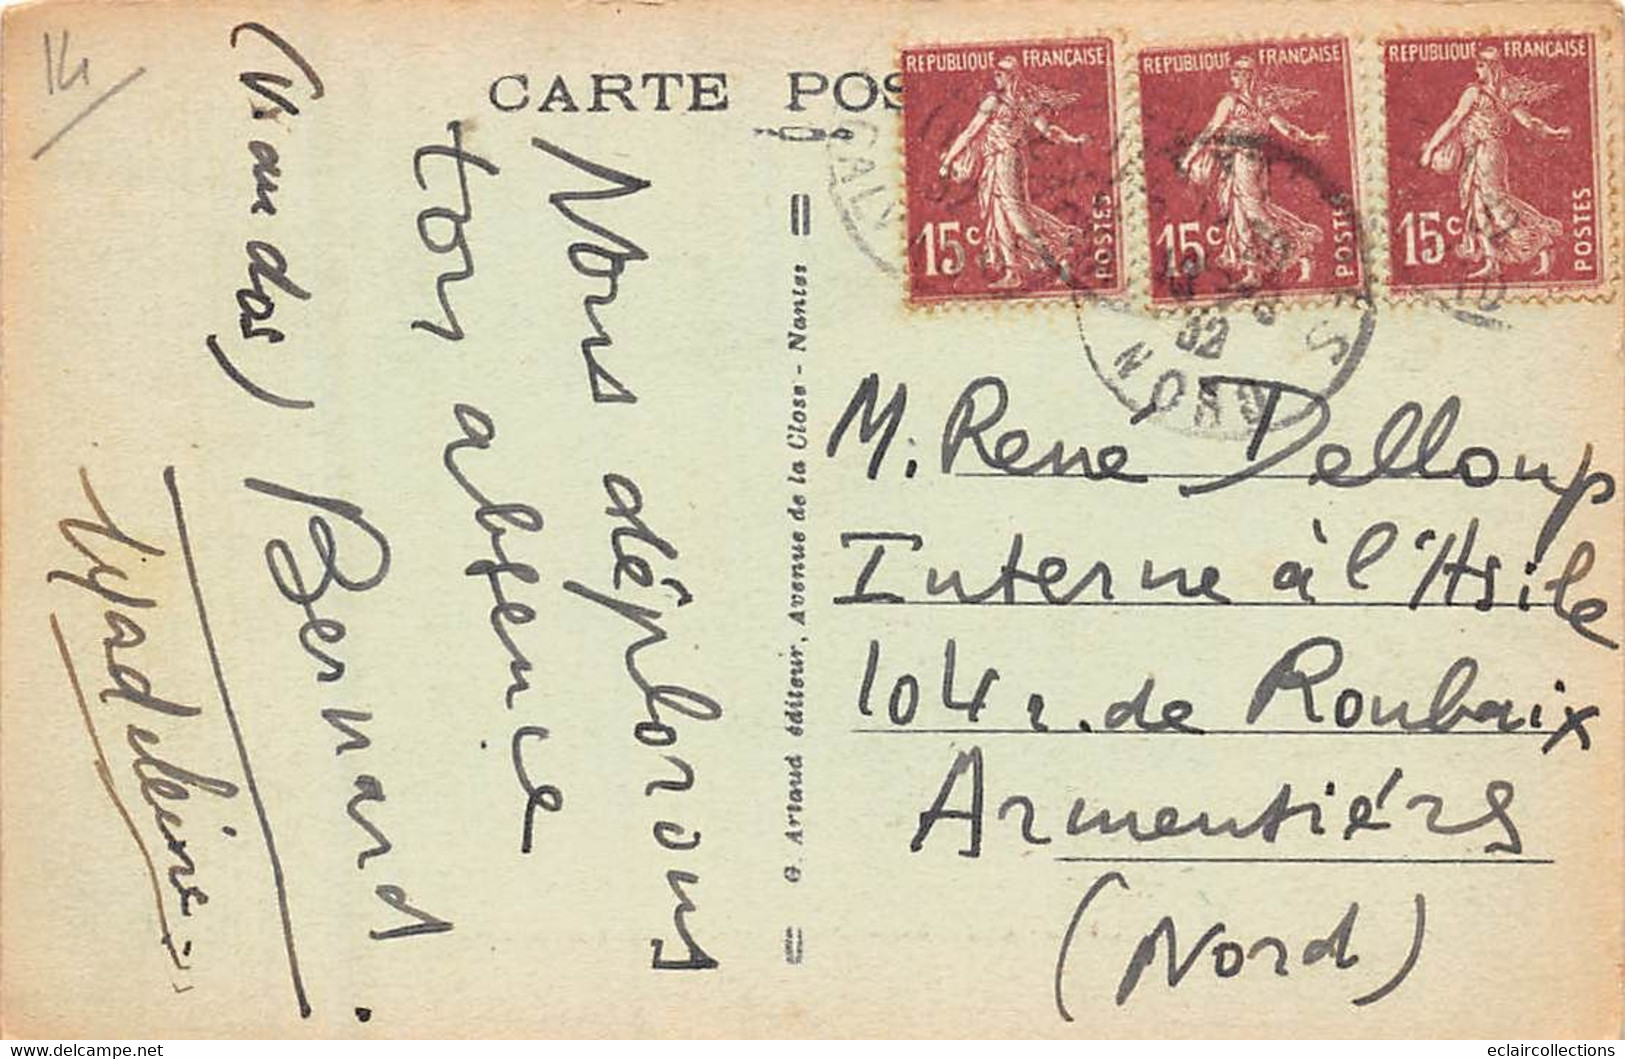 14
CARTE POS
REPUBLIQUE FRANÇAISE
15c POSTES
REPUBLIQUE FRANÇAISE
15c POSTES
REPUBLIQUE FRANÇAISE
15c POSTES
CALV
32
NORD
Nous déplorons
ton absence
(Viandos)
Bernard.
G. Artaud éditeur, Avenue de la Close - Nantes
M. René Delloup
Interne à l'Asile
104 r. de Roubaix
Armentiérs
(Nord)
delcampe.net
eclaircollections